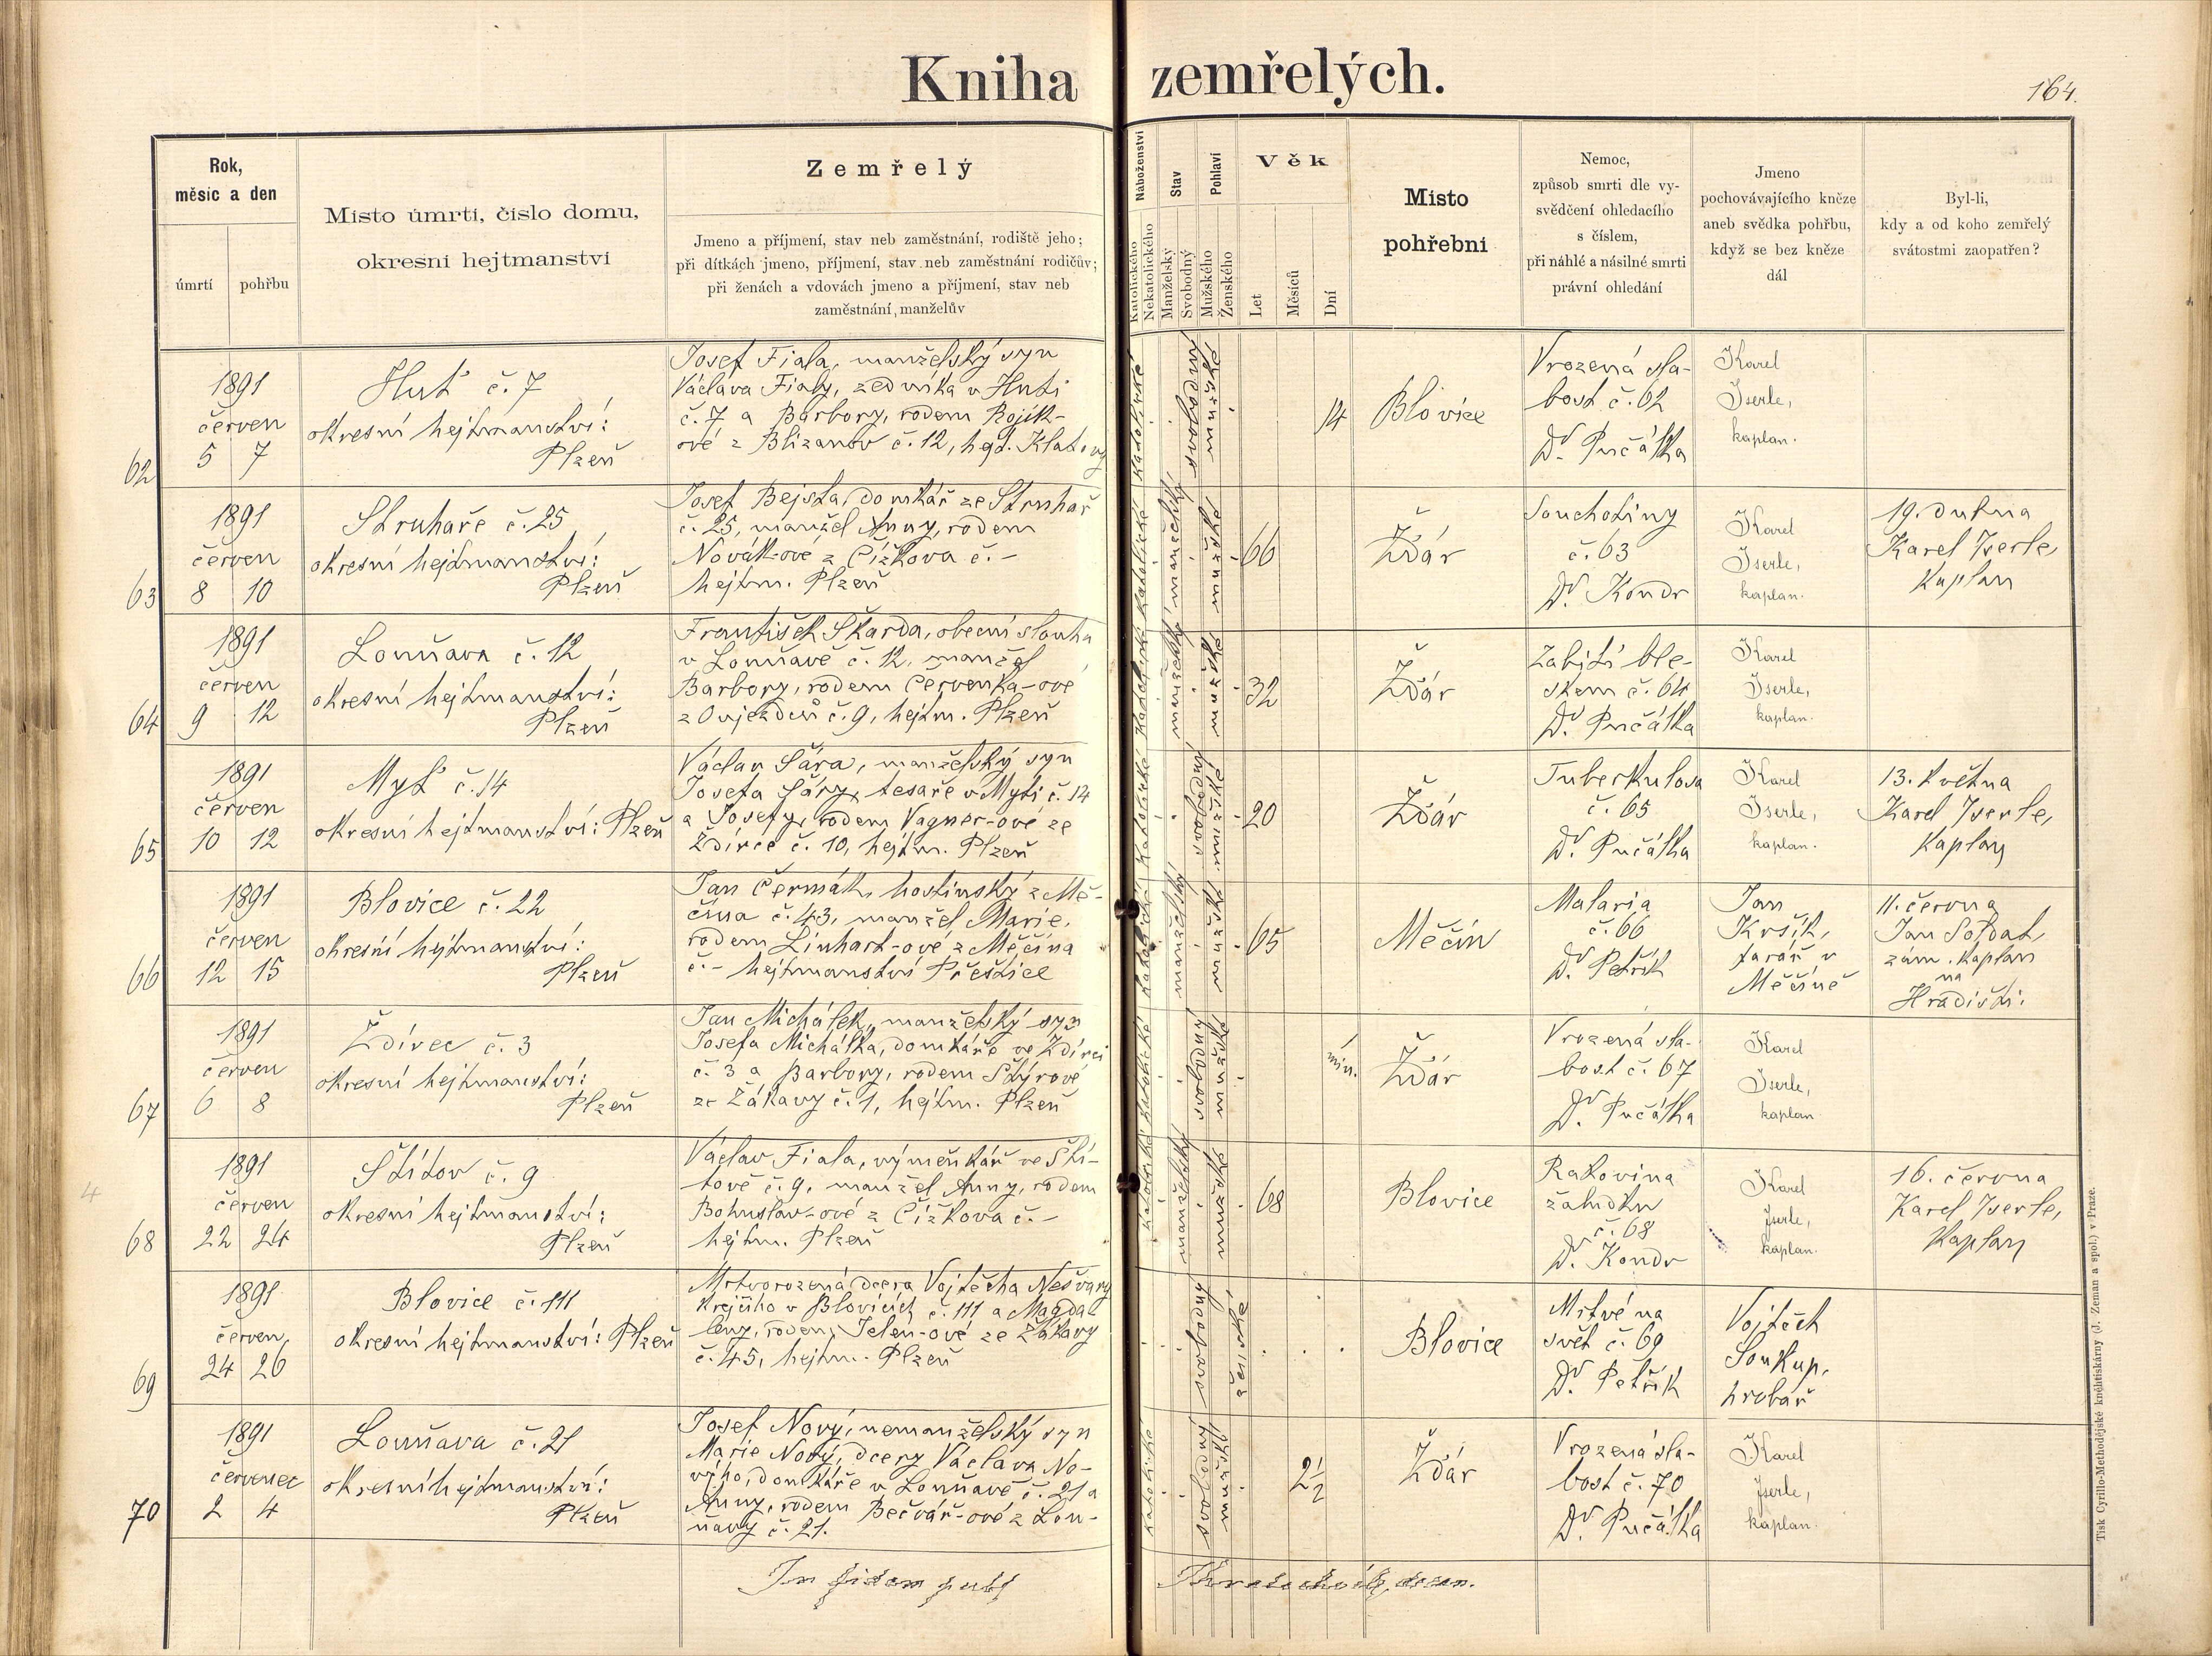 Kniha zemřelých.
164.
Rok,
měsíc a den
úmrtí
pohřbu
Místo úmrtí, číslo domu,
okresní hejtmanství
Zemřelý
Jmeno a příjmení, stav neb zaměstnání, rodiště jeho;
při dítkách jmeno, příjmení, stav neb zaměstnání rodičův;
při ženách a vdovách jmeno a příjmení, stav neb
zaměstnání manželův
Náboženství
Katolického
Nekatolického
Stav
Manželský
Svobodný
Pohlaví
Mužského
Ženského
Věk
Let
Měsíců
Dní
Místo
pohřební
Nemoc,
způsob smrti dle vy-
svědčení ohledacího
s číslem,
při náhlé a násilné smrti
právní ohledání
Jmeno
pochovávajícího kněze
aneb svědka pohřbu,
když se bez kněze
dál
Byl-li,
kdy a od koho zemřelý
svátostmi zaopatřen?
62
1891
červen
5 7
Huť č. 7
okresní hejtmanství:
Plzeň
Josef Fiala, manželský syn
Václava Fialy, zedníka v Huti
č. 7 a Barbory, rodem Rojík-
ové z Blizanov č. 12, hejt. Klatovy
katolické
svobodný
mužské
14
Blovice
Vrozená sla-
bost č. 62
Dr. Pučálka
Karel
Iserle,
kaplan.
63
1891
červen
8 10
Struhaře č. 25
okresní hejtmanství:
Plzeň
Josef Bejsta, domkář ze Struhař
č. 25, manžel Anny, rodem
Novák-ové z Čížkova č. -
hejtm. Plzeň
katolické
manželský
mužské
66
Žďár
Souchotiny
č. 63
Dr. Kondr
Karel
Iserle,
kaplan.
19. dubna
Karel Iserle,
kaplan
64
1891
červen
9 12
Louňava č. 12
okresní hejtmanství:
Plzeň
František Škarda, obecní slouha
v Louňavě č. 12, manžel
Barbory, rodem Červenka-ové
z Oujezden č. 9, hejtm. Plzeň
katolické
manželský
mužské
32
Žďár
Zabití ble-
skem č. 64
Dr. Pučálka
Karel
Iserle,
kaplan.
65
1891
červen
10 12
Myť č. 14
okresní hejtmanství: Plzeň
Václav Šára, manželský syn
Josefa Šáry, tesaře v Myti č. 14
a Josefy, rodem Vagner-ové ze
Ždírce č. 10, hejtm. Plzeň
katolické
svobodný
mužské
20
Žďár
Tuberkulosa
č. 65
Dr. Pučálka
Karel
Iserle,
kaplan.
13. května
Karel Iserle,
kaplan
66
1891
červen
12 15
Blovice č. 22
okresní hejtmanství:
Plzeň
Jan Čermák, hostinský z Mě-
čína č. 43, manžel Marie,
rodem Linhart-ové z Měčína
č. - hejtmanství Přeštice
katolické
manželský
mužské
65
Měčín
Malaria
č. 66
Dr. Petřík
Jan
Krsík,
farář v
Měčíně
11. června
Jan Soldat,
zám. kaplan
na
Hradišti.
67
1891
červen
6 8
Ždírec č. 3
okresní hejtmanství:
Plzeň
Jan Michálek, manželský syn
Josefa Michálka, domkáře ve Ždírci
č. 3 a Barbory, rodem Štýrové
ze Žákavy č. 1, hejtm. Plzeň
katolické
svobodný
mužské
1
min.
Žďár
Vrozená sla-
bost č. 67
Dr. Pučálka
Karel
Iserle,
kaplan
68
1891
červen
22 24
Štítov č. 9
okresní hejtmanství:
Plzeň
Václav Fiala, výměnkář ve Ští-
tově č. 9, manžel Anny, rodem
Bohuslav-ové z Čížkova č. -
hejtm. Plzeň
katolické
manželský
mužské
68
Blovice
Rakovina
žaludku
č. 68
Dr. Kondr
Karel
Iserle,
kaplan.
16. června
Karel Iserle,
kaplan
4
69
1891
červen,
24 26
Blovice č. 111
okresní hejtmanství: Plzeň
Mrtvorozená dcera Vojtěcha Nešvary
krejčího v Blovicích č. 111 a Magda-
leny, rodem Jelen-ové ze Žákavy
č. 45, hejtm. Plzeň
svobodný
ženské
Blovice
Mrtvé na
svět č. 69
Dr. Petřík
Vojtěch
Soukup,
hrobař
70
1891
červenec
2 4
Louňava č. 21
okresní hejtmanství:
Plzeň
Josef Nový, nemanželský syn
Marie Nový, dcery Václava No-
výho, domkáře v Louňavě č. 21 a
Anny, rodem Bečvář-ové z Lou-
ňavy č. 21.
katolické
svobodný
mužské
2 1/2
Žďár
Vrozená sla-
bost č. 70
Dr. Pučálka
Karel
Iserle,
kaplan.
In fidem publ
Tisk Cyrillo-Methodějské kněhtiskárny (J. Zeman a spol.) v Praze.